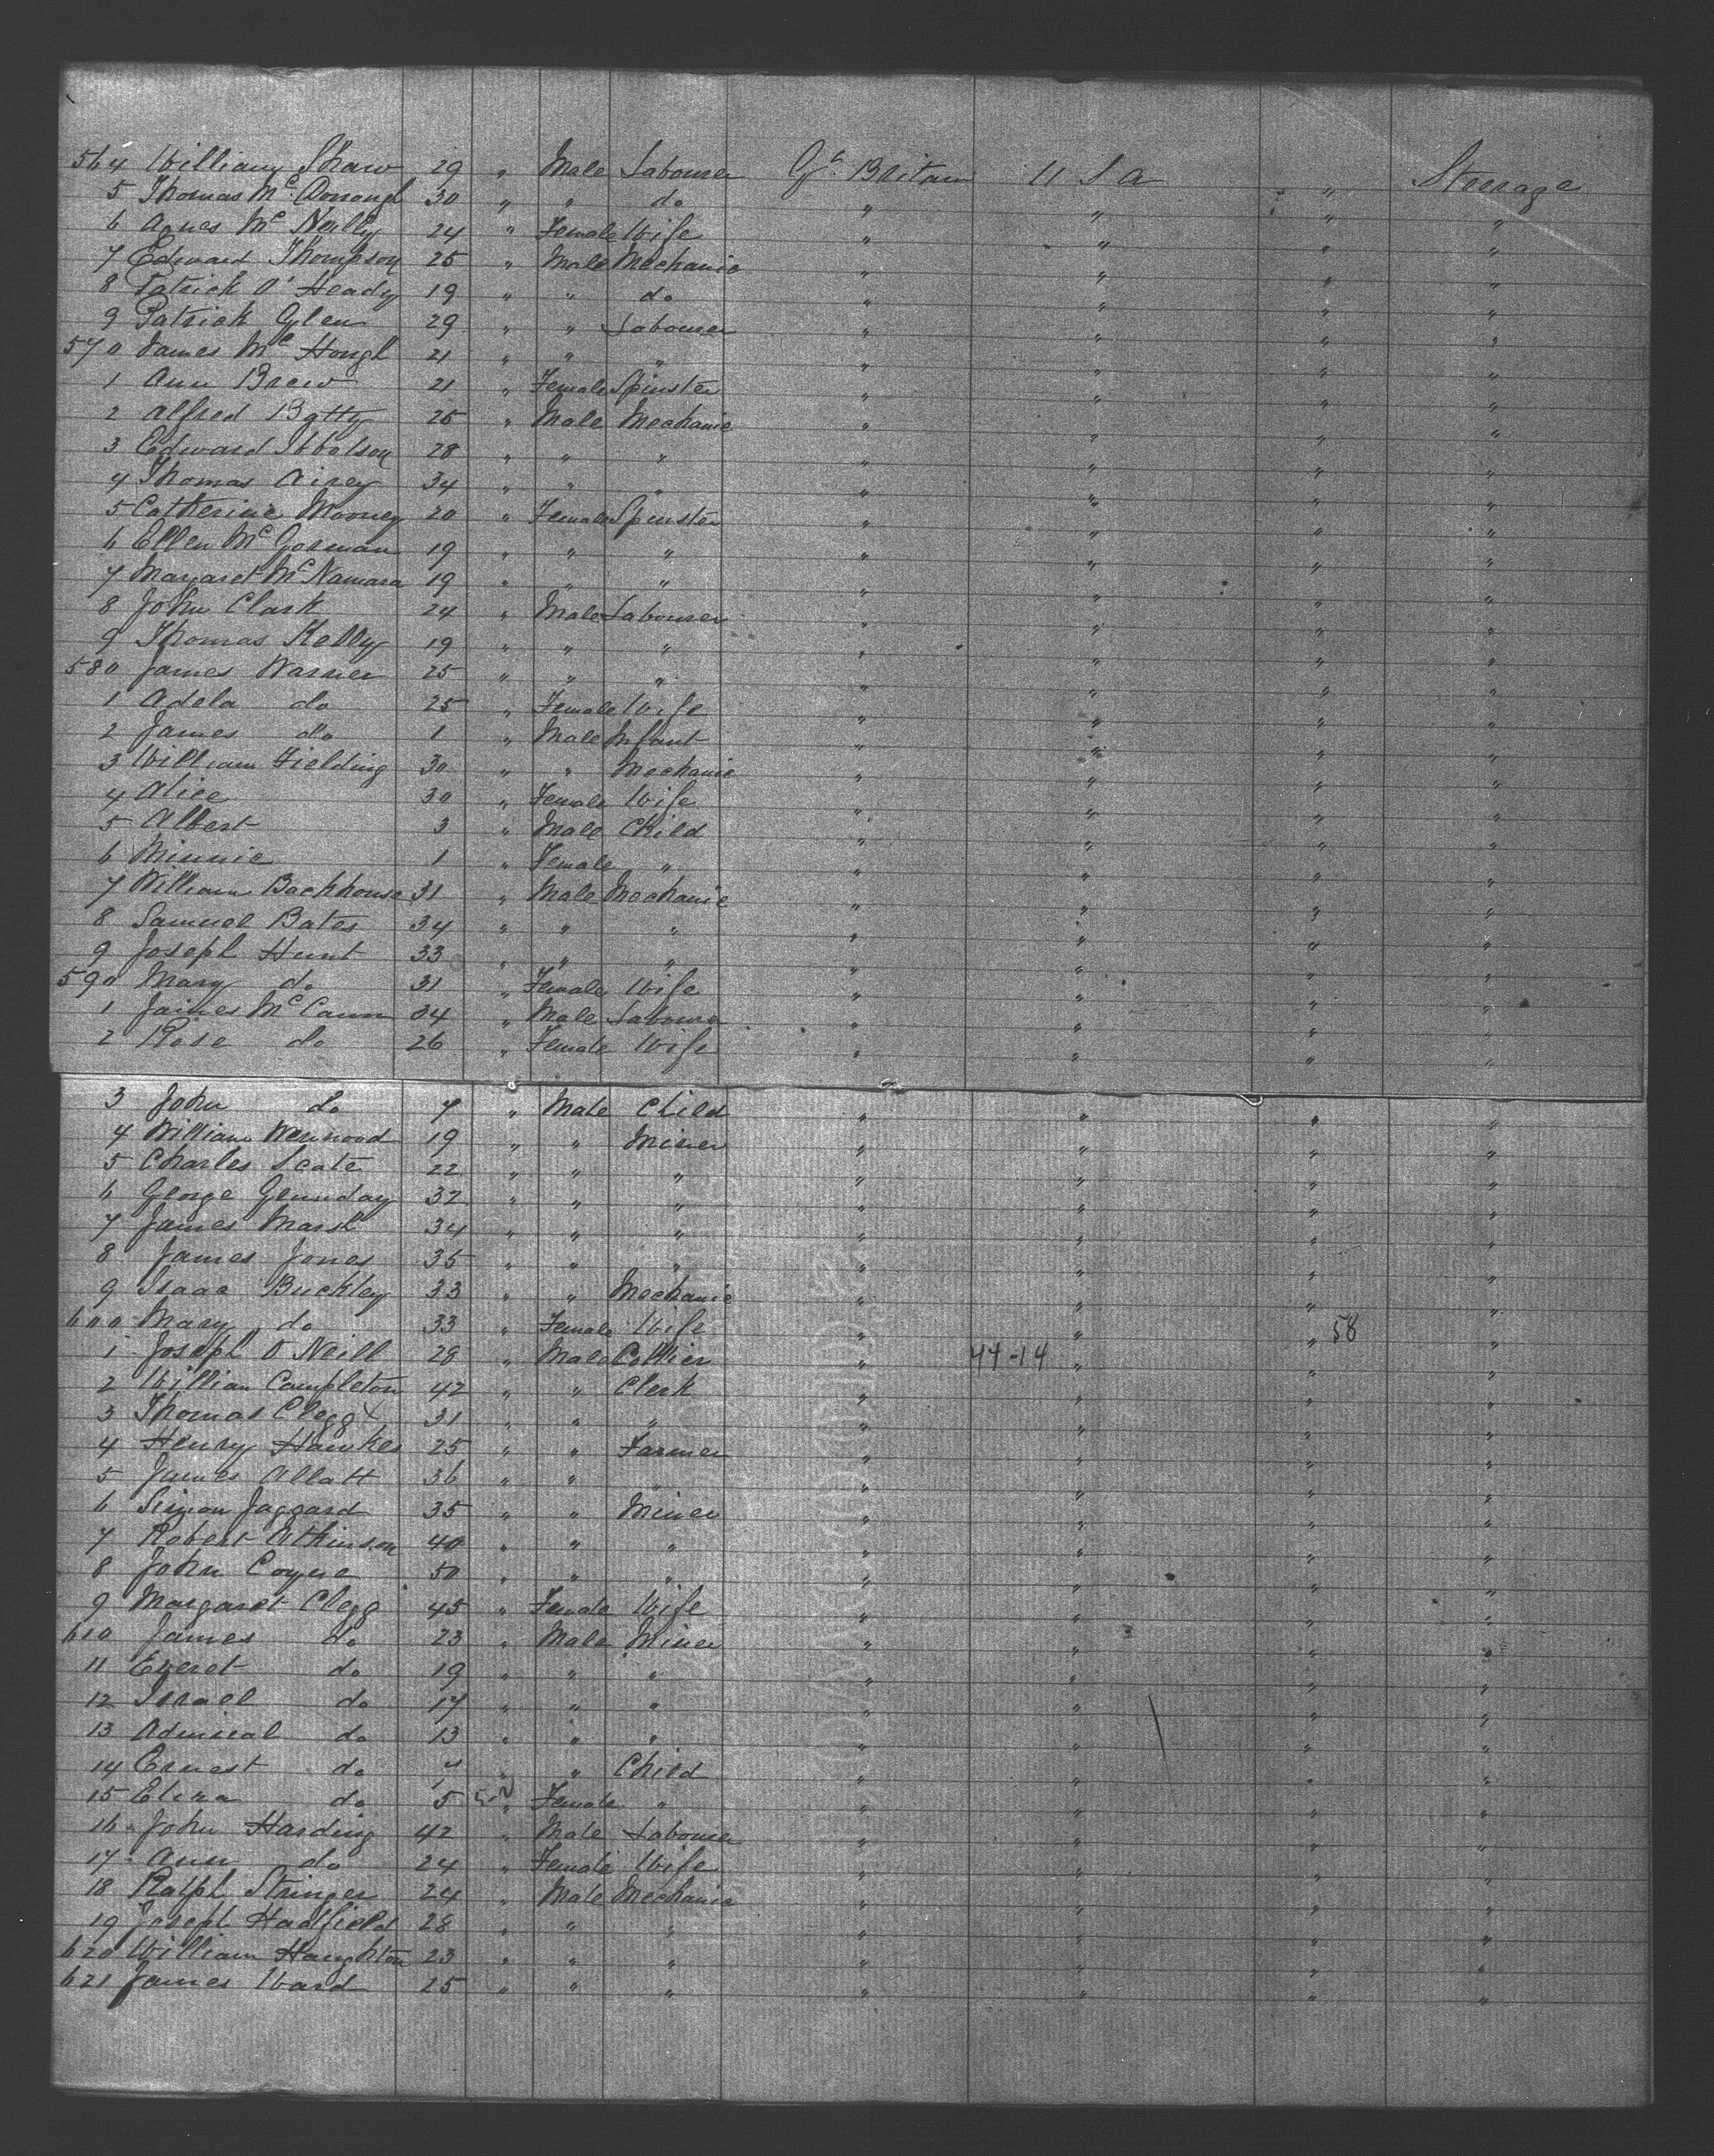 564 William Shaw 29 " Male Labourer Gt. Britain U S A " Steerage
5 Thomas McDonough 30 " " do " " " "
6 Agnes McNeilly 24 " Female Wife " " " "
7 Edward Thompson 25 " Male Mechanic " " " "
8 Patrick O'Heady 19 " " do " " " "
9 Patrick Glen 29 " " Labourer " " " "
570 James McHough 21 " " " " " " "
1 Ann Brew 21 " Female Spinster " " " "
2 Alfred Batty 25 " Male Mechanic " " " "
3 Edward Ibbotson 28 " " " " " " "
4 Thomas Airey 34 " " " " " " "
5 Catherine Mooney 20 " Female Spinster " " " "
6 Ellen McGorman 19 " " " " " " "
7 Margaret McNamara 19 " " " " " " "
8 John Clark 24 " Male Labourer " " " "
9 Thomas Kelly 19 " " " " " " "
580 James Warner 25 " " " " " " "
1 Adela do 25 " Female Wife " " " "
2 James do 1 " Male Infant " " " "
3 William Fielding 30 " " Mechanic " " " "
4 Alice 30 " Female Wife " " " "
5 Albert 3 " Male Child " " " "
6 Minnie 1 " Female " " " " "
7 William Backhouse 31 " Male Mechanic " " " "
8 Samuel Bates 34 " " " " " " "
9 Joseph Hunt 33 " " " " " " "
590 Mary do 31 " Female Wife " " " "
1 James McCann 34 " Male Labourer " " " "
2 Rose do 26 " Female Wife " " " "
3 John do 7 " Male Child " " " "
4 William Wenwood 19 " " Miner " " " "
5 Charles Seate 22 " " " " " " "
6 George Gennday 32 " " " " " " "
7 James Marsh 34 " " " " " " "
8 James Jones 35 " " " " " " "
9 Isaac Buckley 33 " " Mechanic " " " "
600 Mary do 33 " Female Wife " " " 58 "
1 Joseph O Neill 28 " Male Collier " 44-14 " " "
2 William Campleton 42 " " Clerk " " " "
3 Thomas Clegg x 31 " " " " " " "
4 Henry Hawkes 25 " " Farmer " " " "
5 James Allatt 36 " " " " " " "
6 Simon Jaggard 35 " " Miner " " " "
7 Robert Atkinson 40 " " " " " " "
8 John Coyne 50 " " " " " " "
9 Margaret Clegg 45 " Female Wife " " " "
610 James do 23 " Male Miner " " " "
11 Everet do 19 " " " " " " "
12 Israel do 17 " " " " " " "
13 Admiral do 13 " " " " " " "
14 Ernest do 7 " " Child " " " "
15 Eliza do 5 " Female " " " " "
16 John Harding 42 " Male Labourer " " " "
17 Ann do 24 " Female Wife " " " "
18 Ralph Stringer 24 " Male Mechanic " " " "
19 Joseph Hadfield 28 " " " " " " "
620 William Haughton 23 " " " " " " "
621 James Ward 25 " " " " " " "